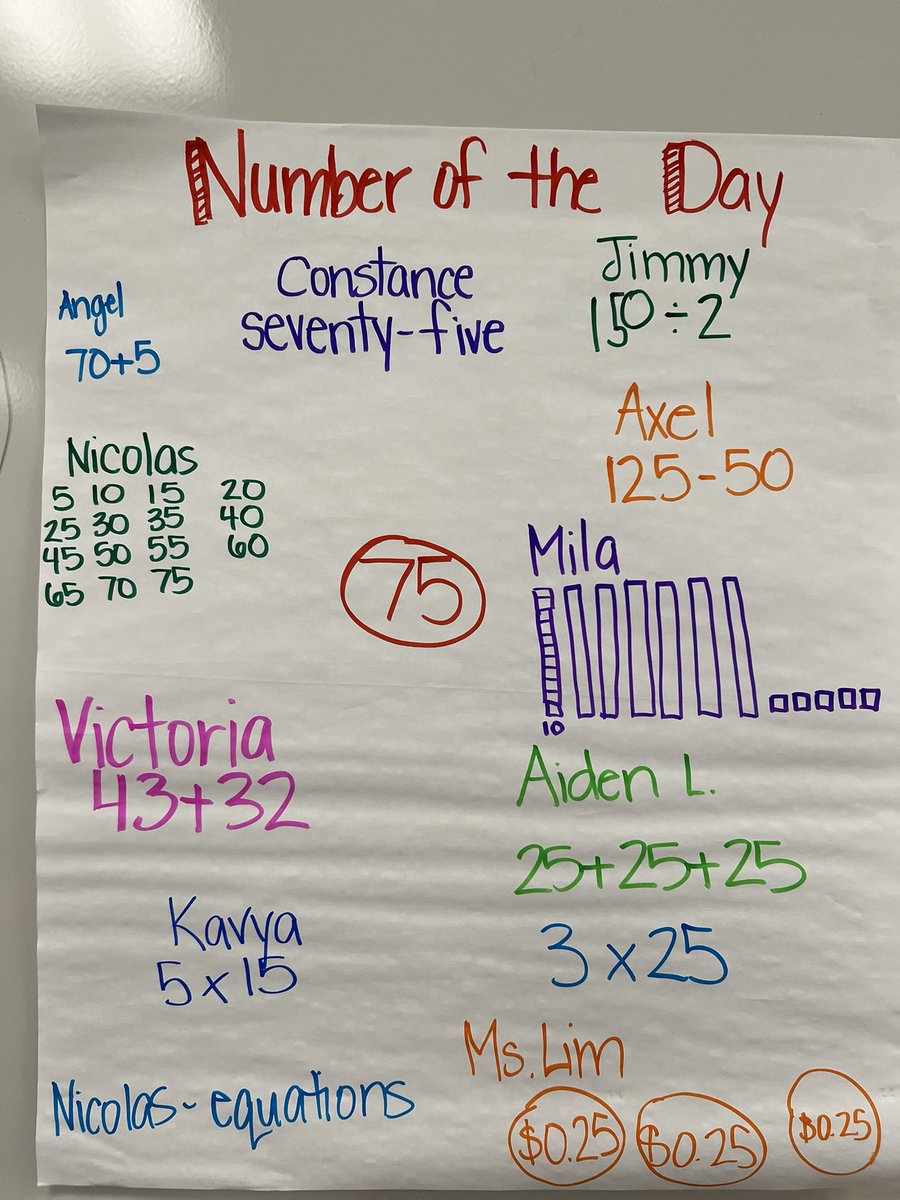 Number of the Day
Angel
70+5
Constance
seventy-five
Jimmy
150÷2
Axel
125-50
Nicolas
5 10 15 20
25 30 35 40
45 50 55 60
65 70 75
75
Mila
10
Victoria
43+32
Aiden L.
25+25+25
3x25
Kavya
5x15
Ms. Lim
$0.25 $0.25 $0.25
Nicolas- equations